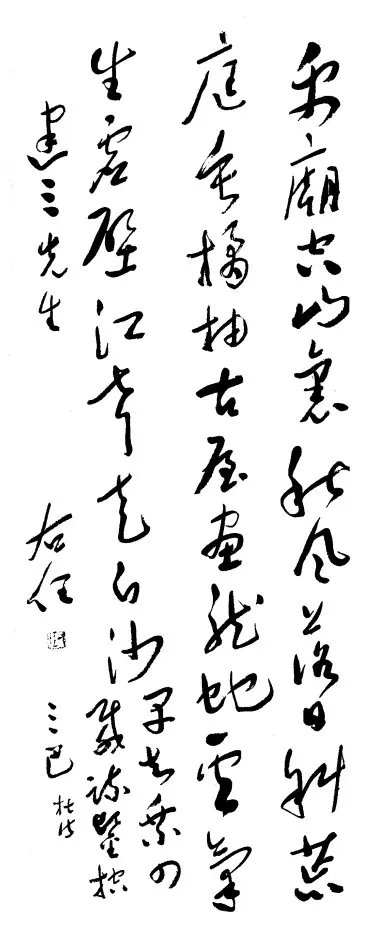 禹廟空山裏秋風落日斜荒
庭垂橘柚古屋畫龍蛇雲氣
生虛壁江聲走白沙
早知乘四
載疏鑿控
三巴 杜詩
建三先生
右任